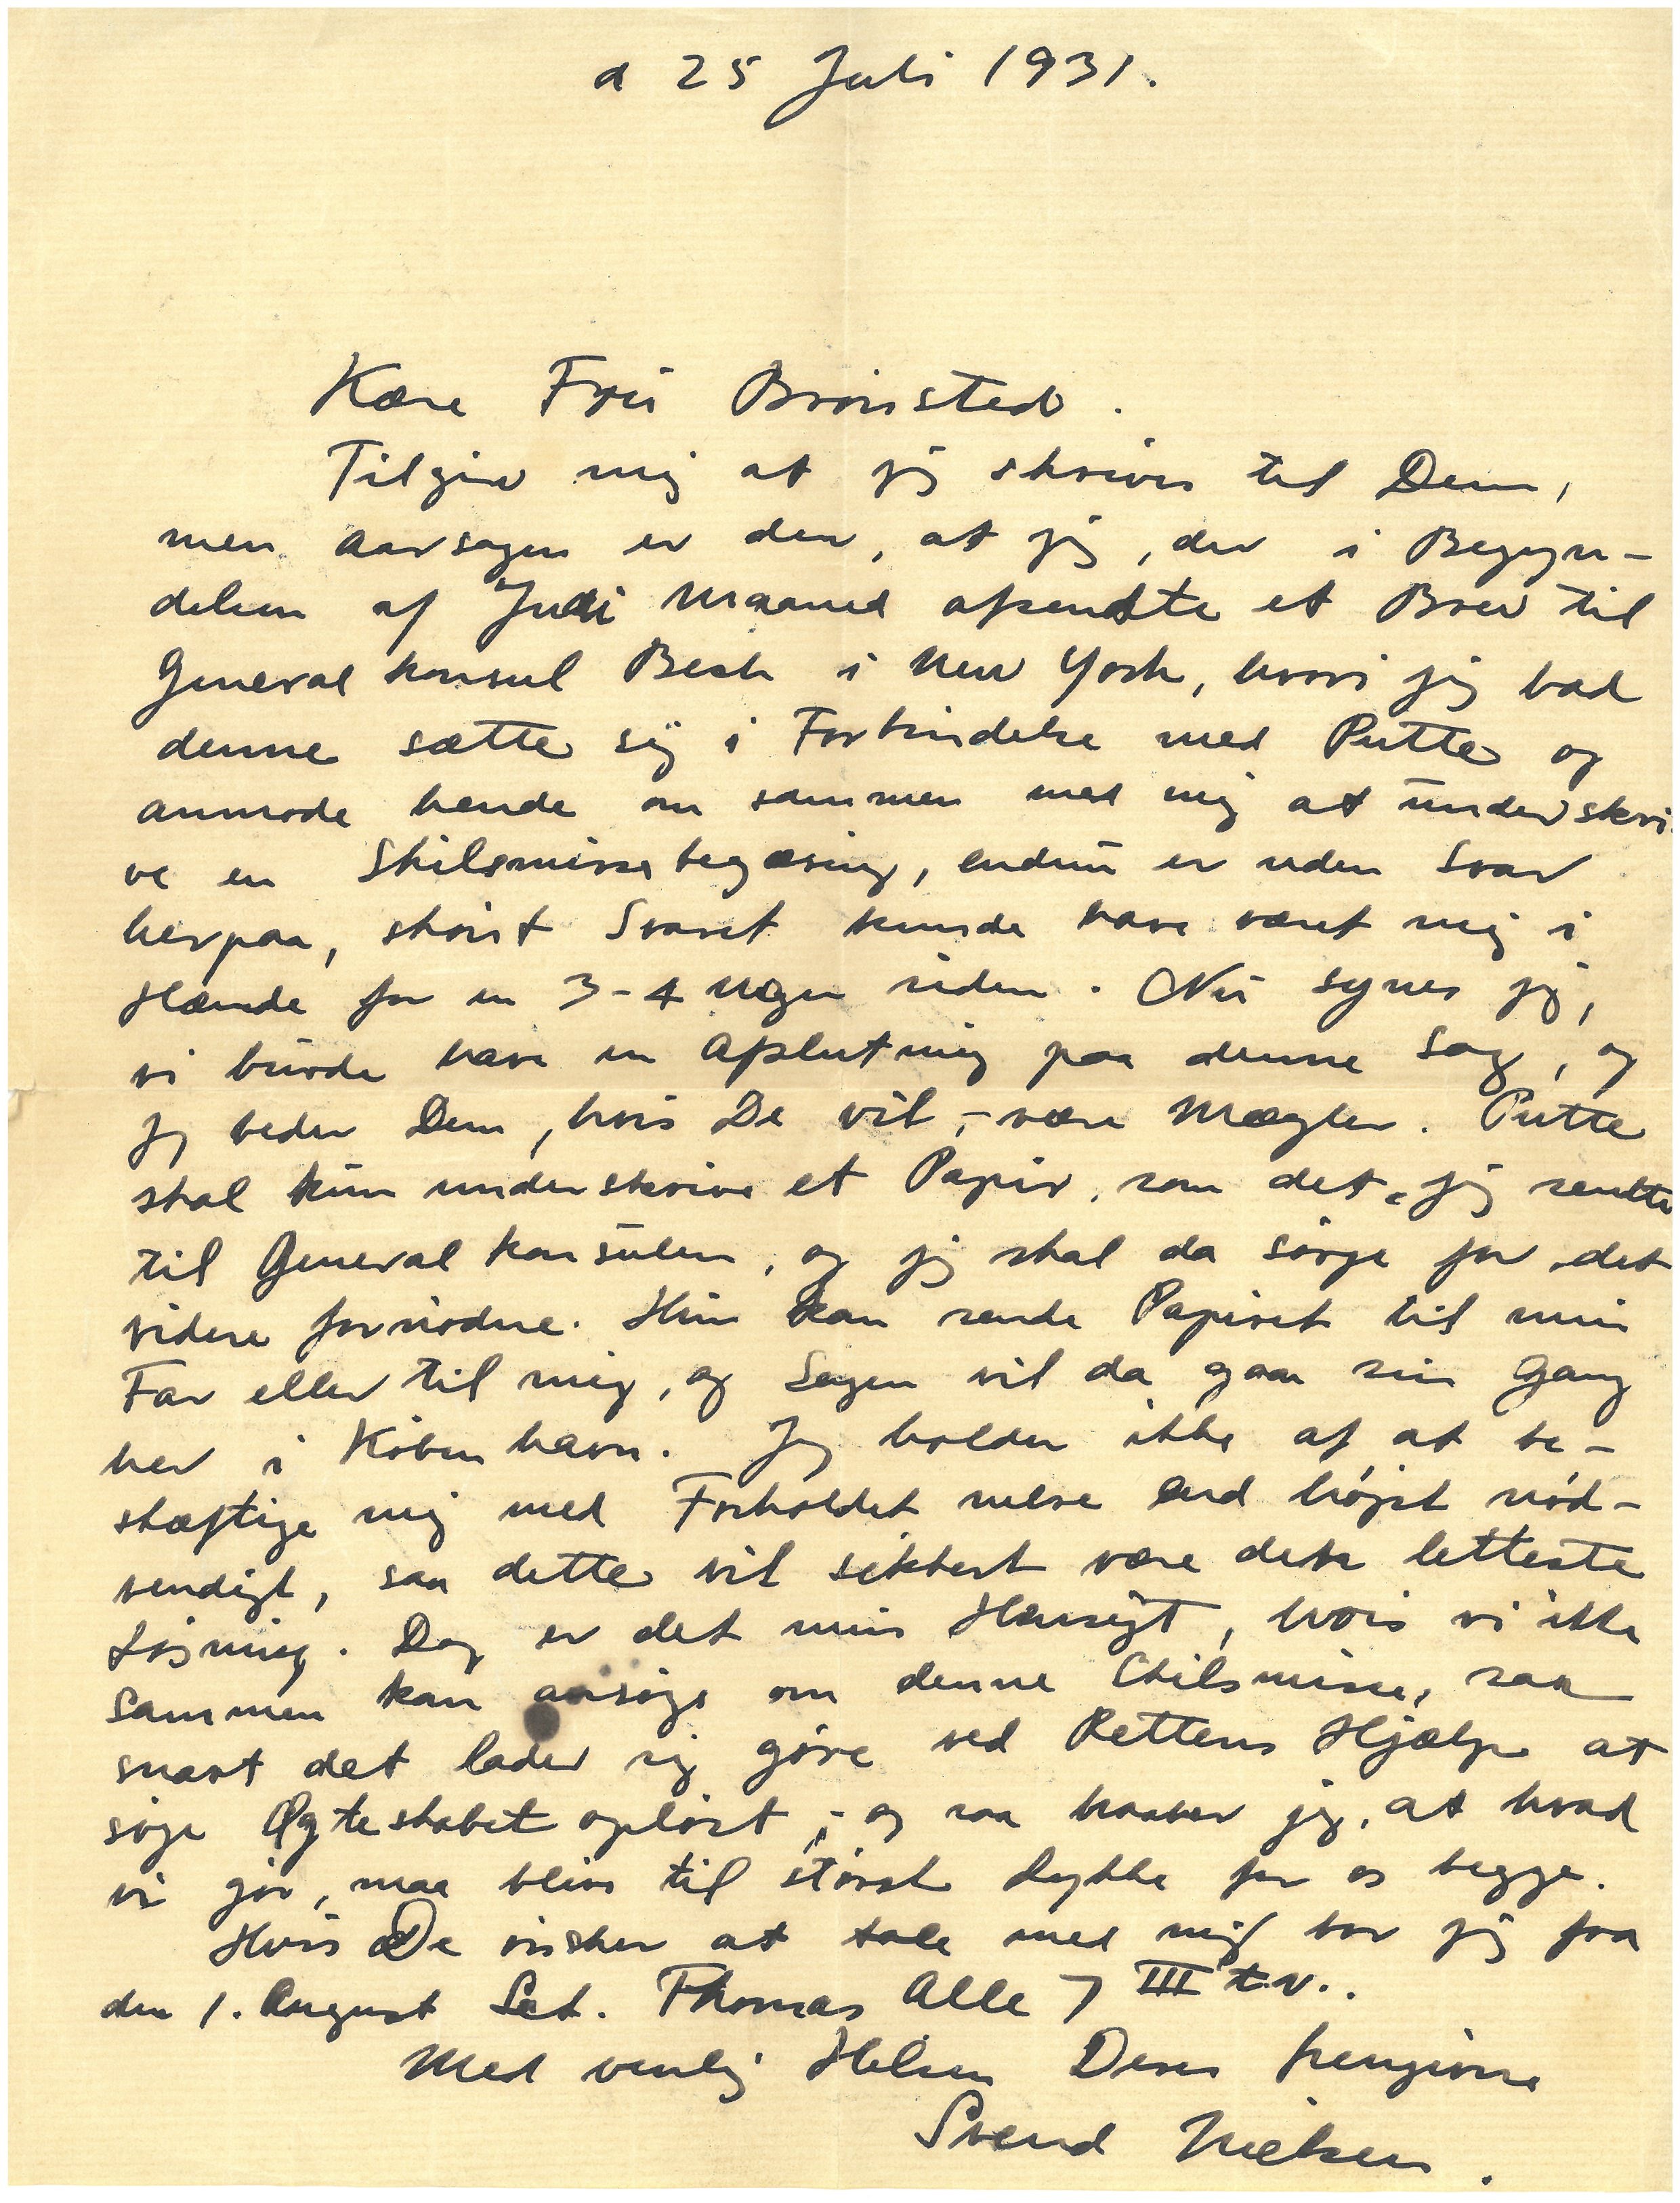 d 25 Juli 1931.
Kære Fru Brønsted.
Tilgiv mig at jeg skriver til Dem,
men Aarsagen er den, at jeg, der i Begyn-
delsen af Juni Maaned afsendte et Brev til
Generalkonsul Bech i New York, hvori jeg bad
denne sætte sig i Forbindelse med Putte og
anmode hende om sammen med mig at underskri-
ve en Skilsmissebegæring, endnu er uden Svar
herpaa, skønt Svaret kunde have været mig i
Hænde for en 3-4 Uger siden. Nu synes jeg,
vi burde have en Afslutning paa denne Sag, og
jeg beder Dem, hvis De vil, - være Mægler. Putte
skal kun underskrive et Papir, som det, jeg sendte
til Generalkonsulen, og jeg skal da sørge for det
videre fornødne. Hun kan sende Papiret til min
Far eller til mig, og Sagen vil da gaa sin Gang
her i København. Jeg holder ikke af at be-
skæftige mig med Forholdet mere end højst nød-
vendigt, saa dette vil sikkert være den letteste
Løsning. Dog er det min Hensigt, hvis vi ikke
sammen kan ansøge om denne Skilsmisse, saa
snart det lader sig gøre ved Rettens Hjælp at
søge Ægteskabet opløst, - og saa haaber jeg, at hvad
vi gør, maa blive til størst Lykke for os begge.
Hvis De ønsker at tale med mig bor jeg fra
den 1. August Sct. Thomas Alle 7 III t.v..
Med venlig Hilsen Deres hengivne
Svend Nielsen.